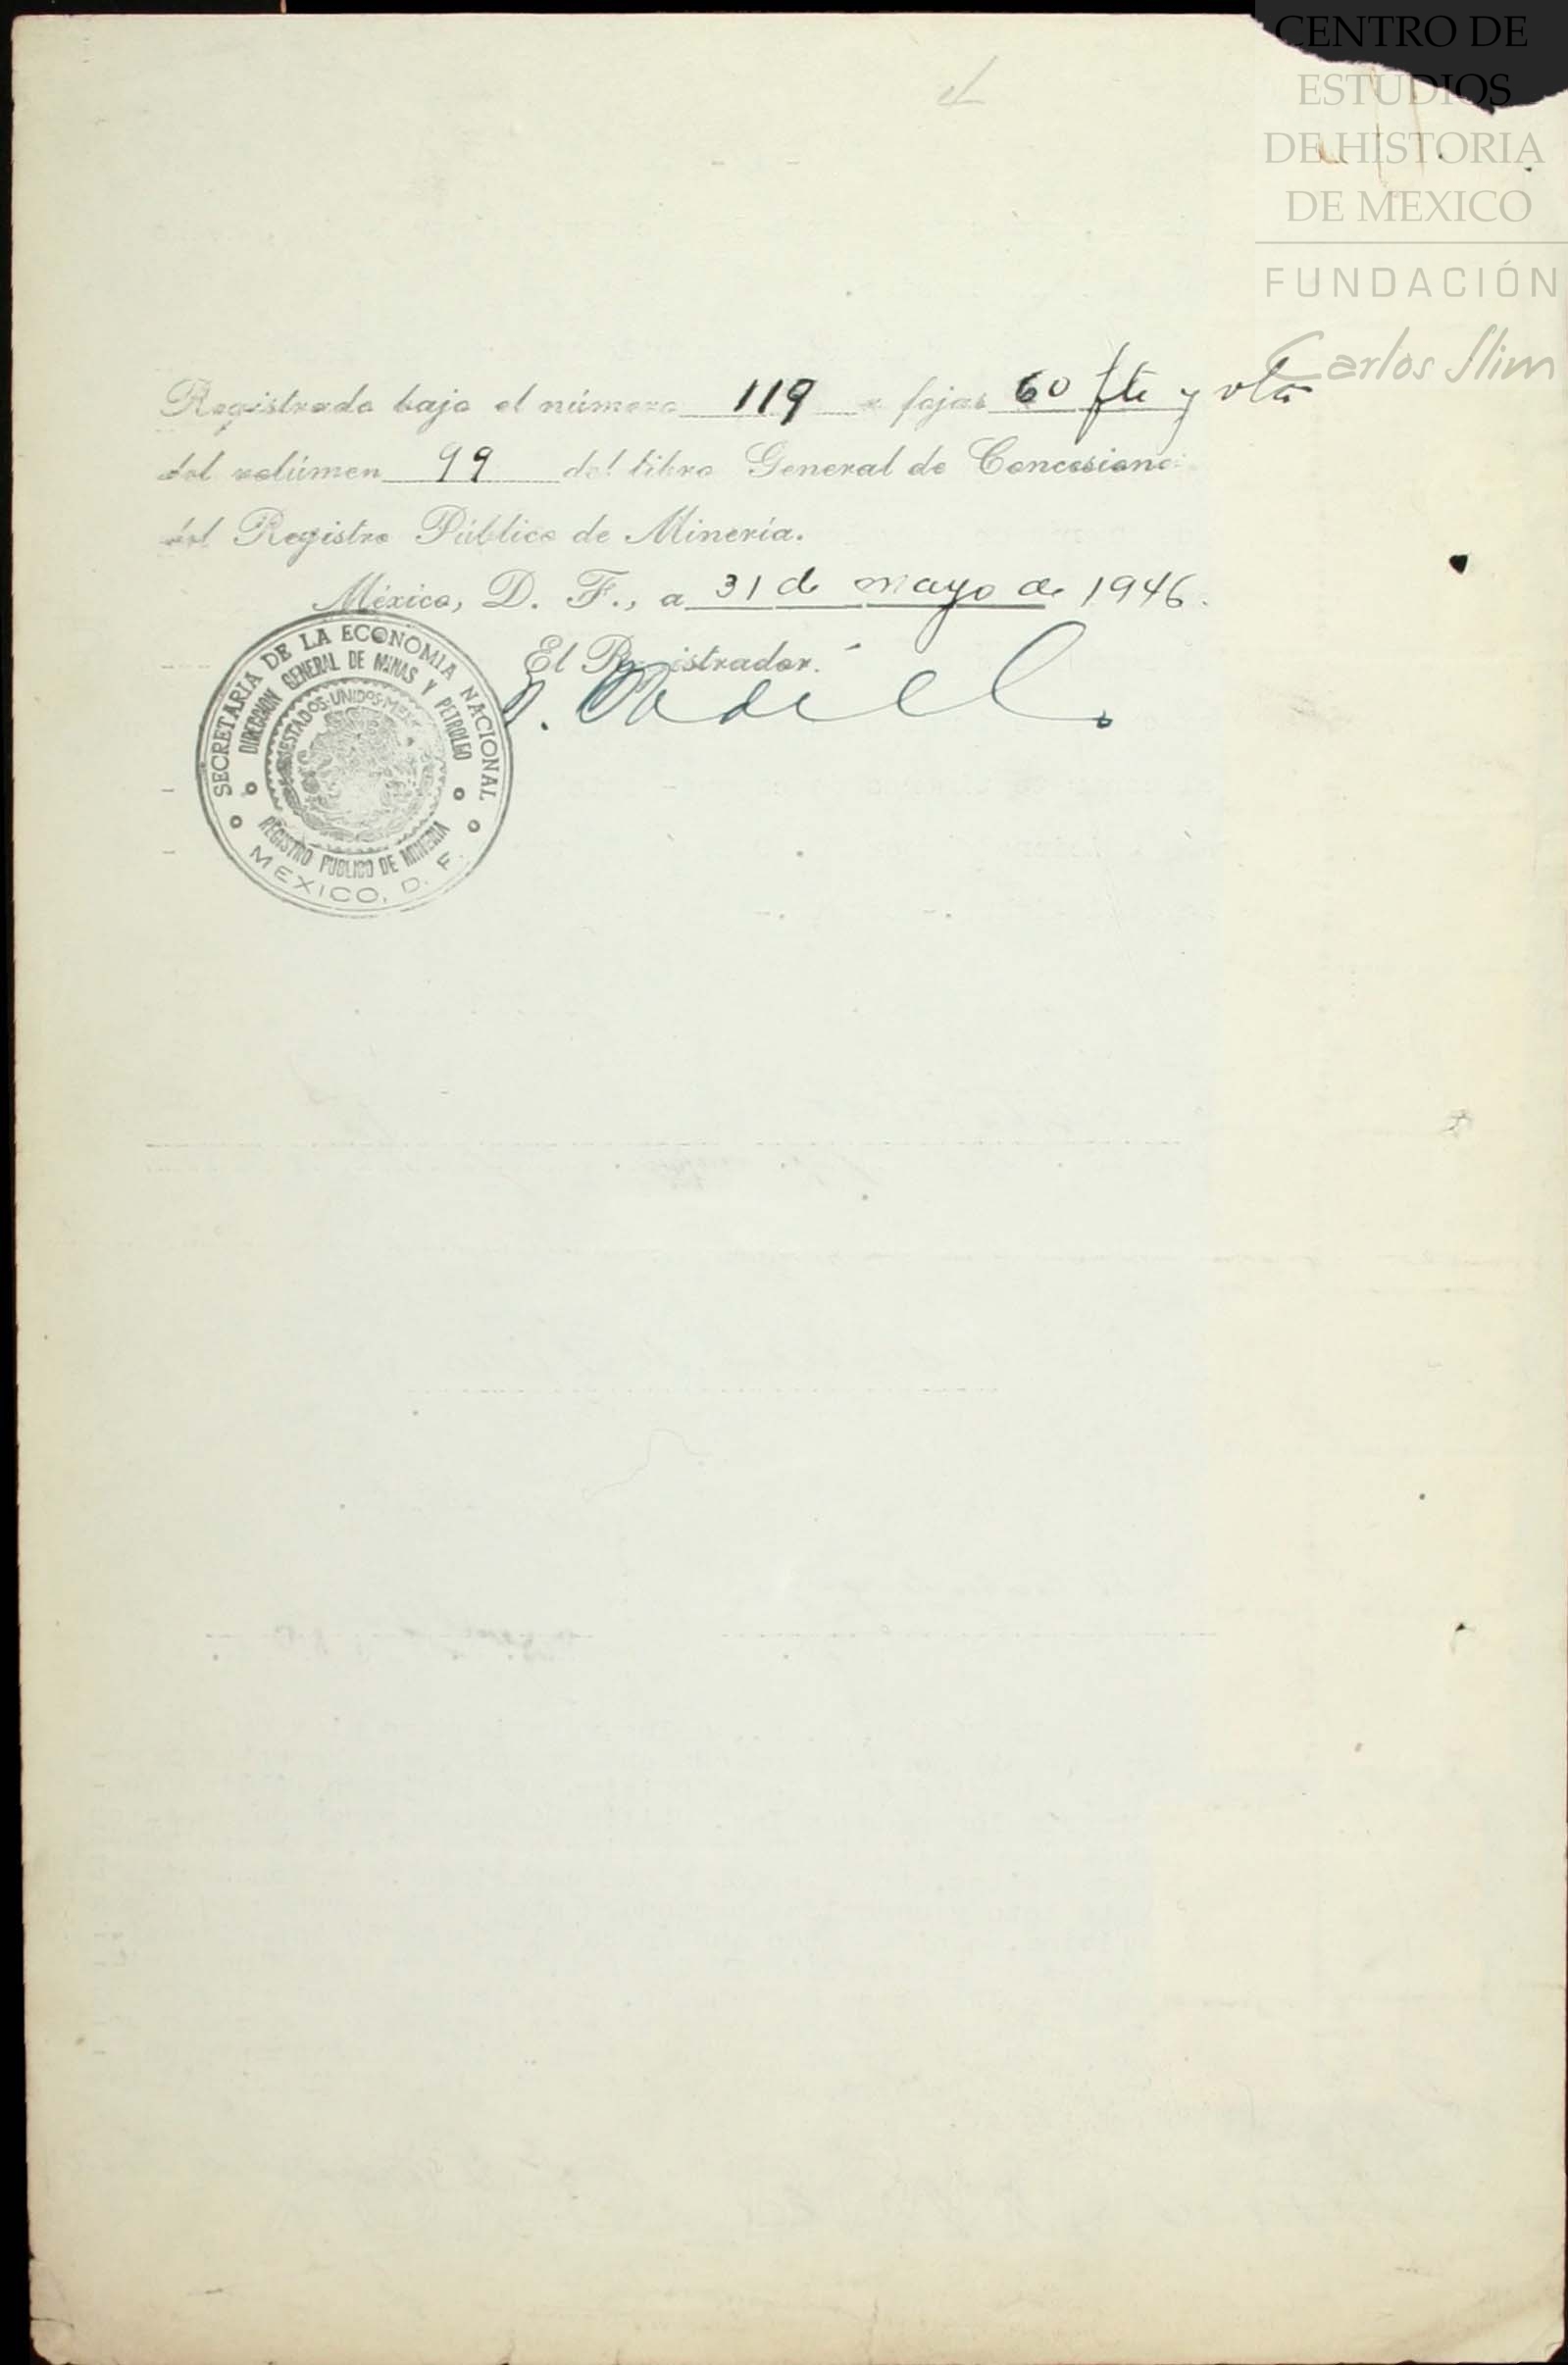 CENTRO DE
ESTUDIOS
DE HISTORIA
DE MEXICO
FUNDACIÓN
Carlos Slim
Registrada bajo el número 119 a fojas 60 fte y vta
del volúmen 99 del libro General de Concesiones
del Registro Público de Minería.
México, D. F., a 31 de mayo de 1946.
El Registrador.
SECRETARIA DE LA ECONOMIA NACIONAL
DIRECCION GENERAL DE MINAS Y PETROLEO
ESTADOS UNIDOS MEX
REGISTRO PUBLICO DE MINERIA
MEXICO, D. F.